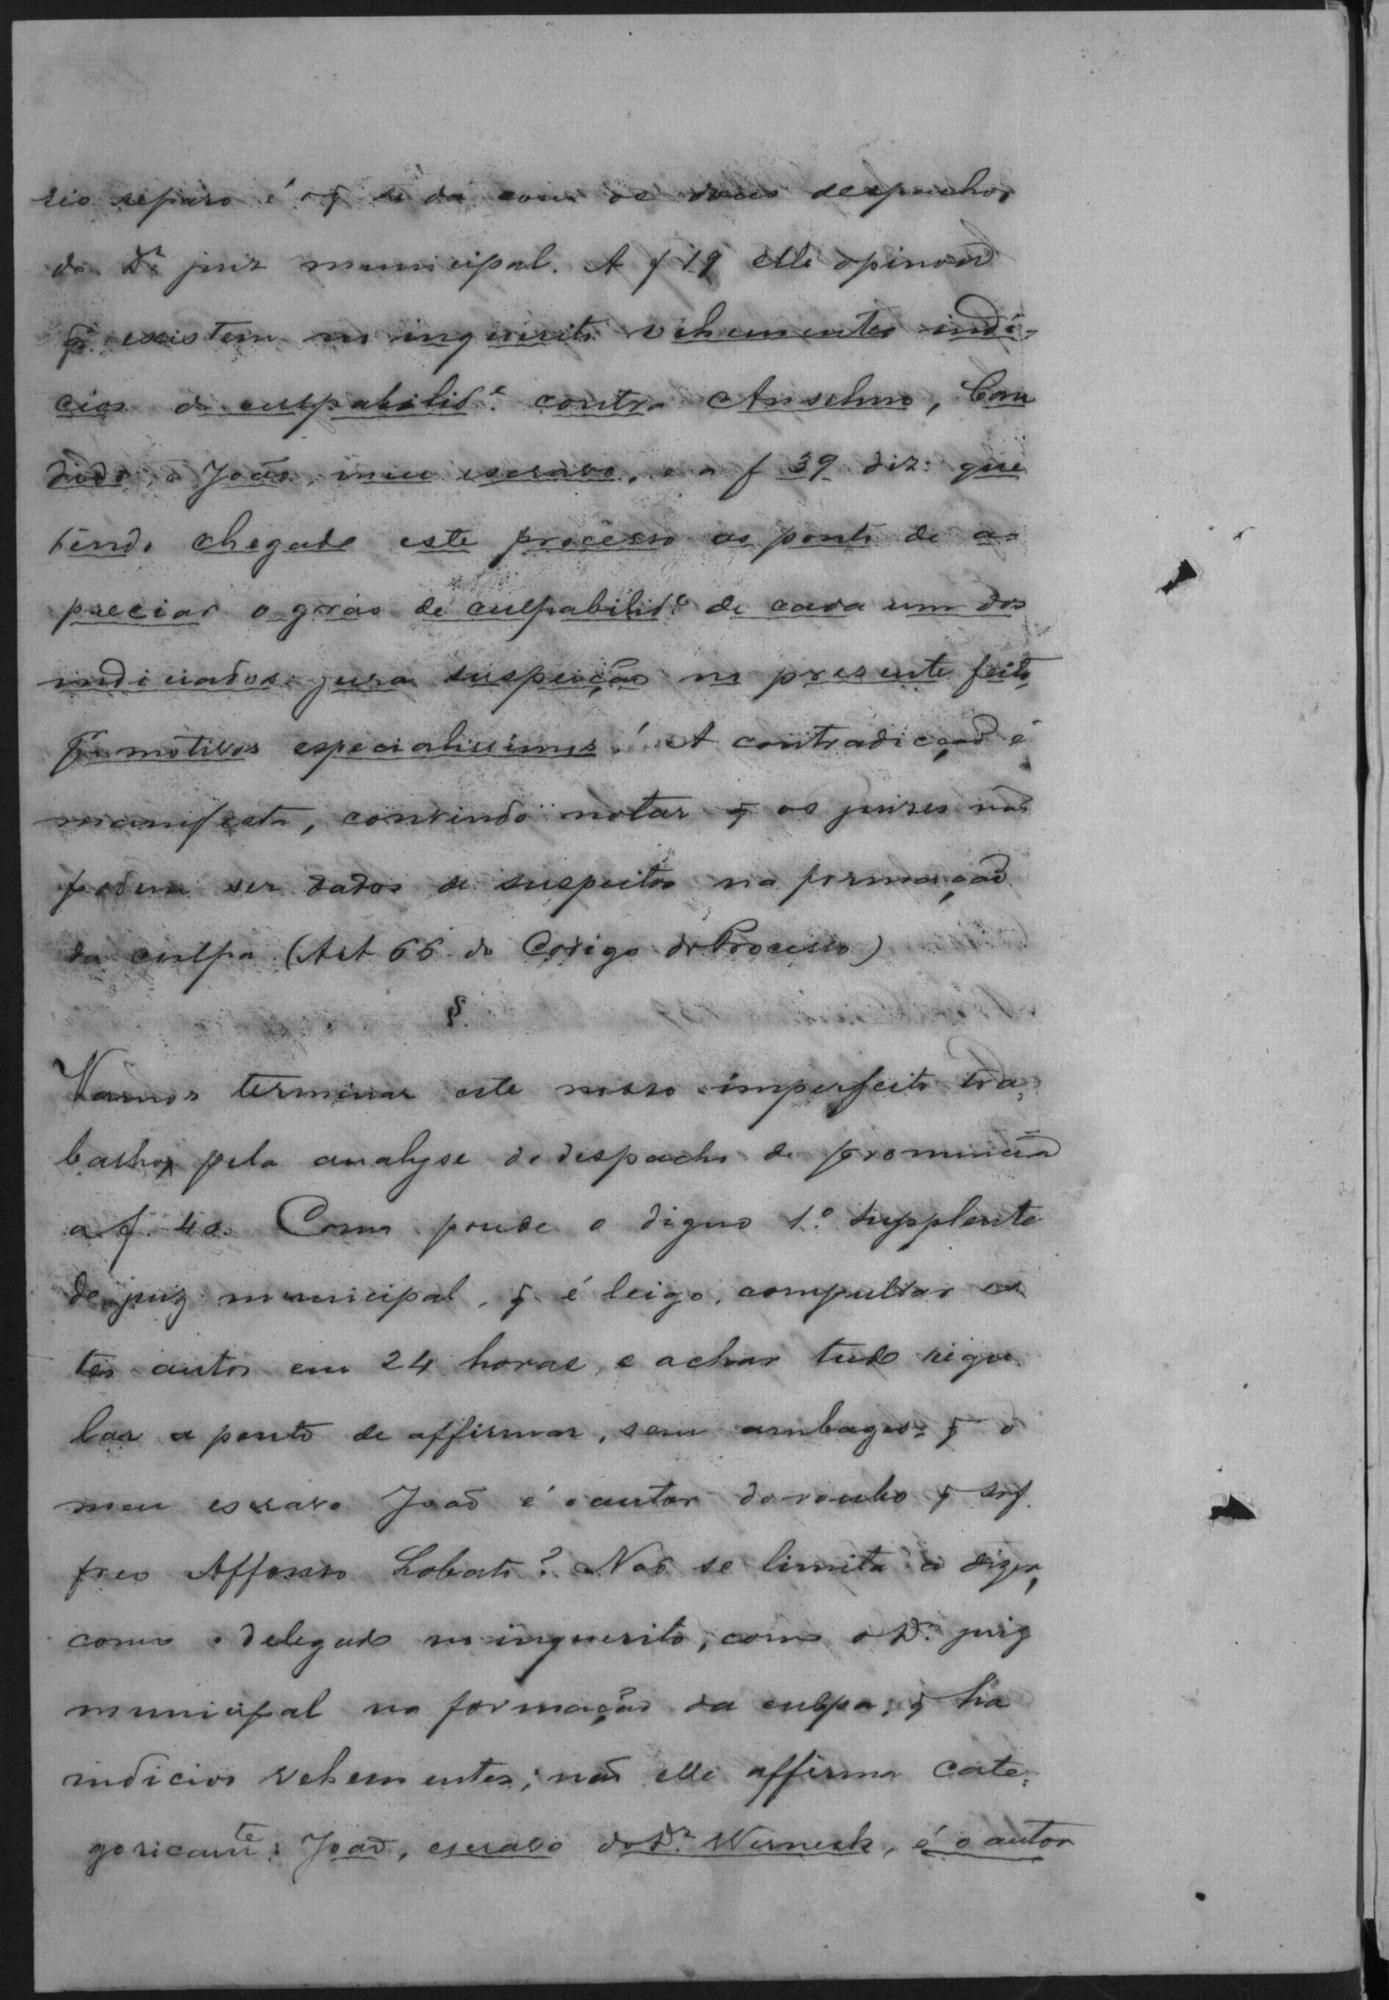 rio reparo é o q̃ se da com os dous despachos
do Dr juiz municipal. A f 19 elle opinou
q̃ existem no inquerito vehementes indi-
cios de culpabilid.e contra Anselmo, Can
dido, e João, meu escravo, e a f 39 diz: que
tendo chegado este processo ao ponto de a-
preciar o gráo de culpabilid.e de cada um dos
indiciados jura suspeição no presente feito
p.r motivos especialissimos! A contradicção é
manifesta, convindo notar q̃ os juizes não
podem ser dados de suspeitos na formação
da culpa (Art 66 do Codigo do Processo)
§
Vamos terminar este nosso imperfeito tra-
balho, pela analyse do despacho de pronuncia
a f. 40. Como poude o digno 1.º supplente
do juiz municipal, q̃ é leigo, compulsar es
tes autos em 24 horas, e achar tudo regu-
lar a ponto de affirmar, sem ambages: q̃ o
meu escravo João é o autor do roubo q̃ sof-
freo Affonso Lobato? Não se limita a dizer,
como o delegado no inquerito, como o Dr. juiz
municipal na formação da culpa, q̃ ha
indicios vehementes; não elle affirma cate-
goricamte: João, escravo do Dr. Werneck, é o autor